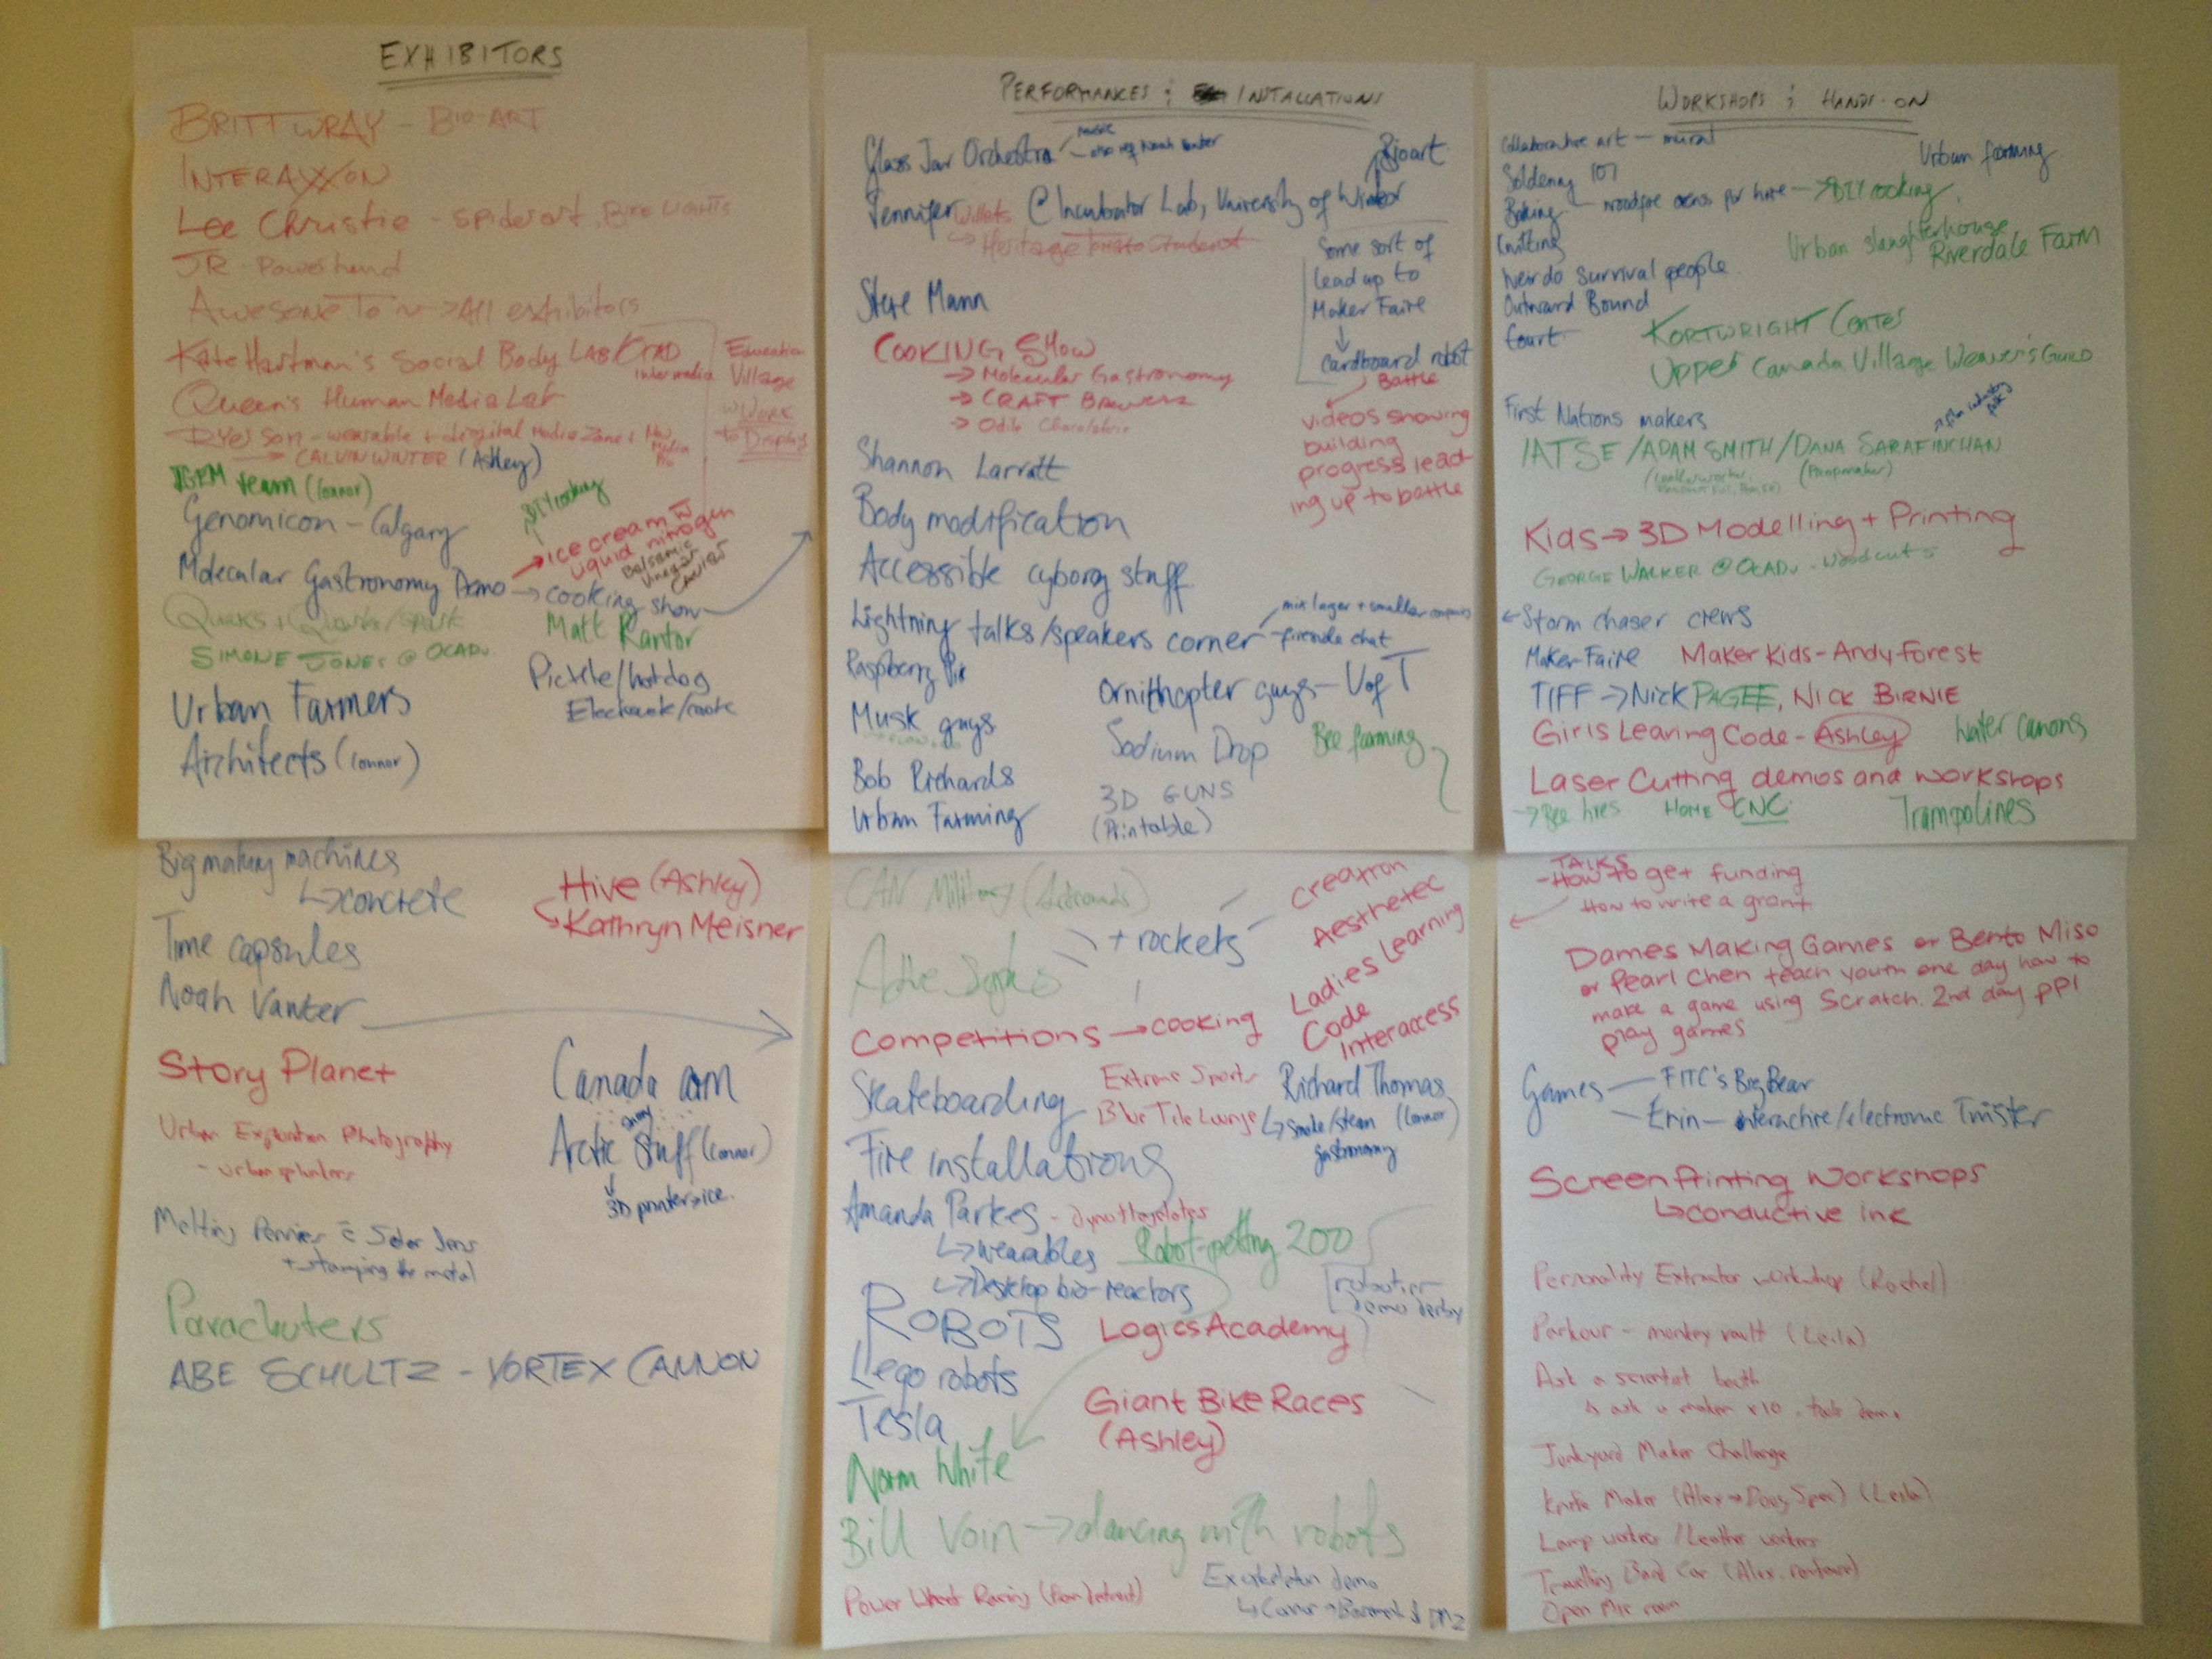 EXHIBITORS
BRITT WRAY - BIO-ART
INTERAXXON
Lee Christie spiderart, BIKE LIGHTS
JR Powerhand
Awesome To →All exhibitors
Kate Hartman's Social Body LAB/OCAD
intermedia
Queen's Human Media Lab
Ryerson - wearable + digital media zone + New Media
→ CALVIN WINTER (Ashley)
Education Village
w WORK
to Display
team (Connor)
Genomicon - Calgary
DIY cooking
Molecular Gastronomy Demo → cooking show
→ ice cream w liquid nitrogen
Balsamic Vinegar CAVIAR
Quirks + Quarks / Spark
Matt Kantor
SIMONE JONES @ OCADU
Pickle/hotdog
Urban Farmers
Architects (Connor)
Big making machines
↳ concrete
Hive (Ashley)
↳ Kathryn Meisner
Time capsules
Noah Vanter
Story Planet
Canada arm
Urban Exploration Photography
- urban splunkers
Arctic stuff (Connor)
↓
3D printer → ice.
Melting Pennies c Solar lens
+ stamping the metal
Parachuters
ABE SCHULTZ - VORTEX CANNON
PERFORMANCES & INSTALLATIONS
Glass Jar Orchestra
music
Bioart
Jennifer Willets @ Incubator Lab, University of Windsor
↳ Heritage
Some sort of
lead up to
Maker Faire
↓
cardboard robot
Battle
videos showing
building
progress lead-
ing up to battle
Steve Mann
COOKING SHOW
→ Molecular Gastronomy
→ CRAFT BREWERS
→ Odile Chocolaterie
Shannon Larratt
Body modification
Accessible cyborg stuff
Lightning talks/speakers corner
mix larger + smaller
- fireside chat
Raspberry Pie
Ornithopter guys - U of T
Musk guys
Sodium Drop
Bee farming
Bob Richards
3D GUNS
(Printable)
Urban Farming
CAN Military (Astronauts)
+ rockets
Creatron
Aesthetec
Ladies Learning
Code
Interaccess
Competitions → cooking
Skateboarding
Extreme Sports
Blue Tile Lounge
Richard Thomas
↳ smoke/steam (Connor)
gastronomy
Fire installations
Amanda Parkes
↳ wearables
↳ Desktop bio-reactors
Robot-petting 200
demo derby
ROBOTS
Logics Academy
Lego robots
Tesla
Giant Bike Races
(Ashley)
Norm White
Bill Voin → dancing with robots
Power Wheel Racing (from Detroit)
Exoskeleton demo
WORKSHOPS & HANDS-ON
Collaborative art - mural
Urban farming
Soldering 101
Baking - woodfire ovens for hire → DIY cooking
Knitting
Urban slaughterhouse
Riverdale Farm
Weirdo survival people
Outward Bound
Court
KORTWRIGHT CENTER
Upper Canada Village Weaver's GUILD
First Nations makers
→ film industry
IATSE / ADAM SMITH / DANA SARAFINCHAN
(Propmaker)
Kids → 3D Modelling + Printing
GEORGE WALKER @ OCADU - woodcuts
← Storm chaser crews
Maker Faire
Maker Kids - Andy Forest
TIFF → NICK PAGEE, NICK BIRNIE
Girls Learing Code - Ashley
Water canons
Laser Cutting demos and workshops
→ Bee hives
HOME CNC
Trampolines
TALKS
- How to get funding
How to write a grant
Dames Making Games or Bento Miso
or Pearl Chen teach youth one day how to
make a game using Scratch. 2nd day ppl
play games
Games - FITC's BigBear
- Erin - interactive/electronic Twister
Screen Printing Workshops
↳ conductive ink
Personality Extractor workshop (Rachel)
Parkour - monkey vault (Leila)
Ask a scientist booth
↳ ask a maker x10
Junkyard Maker Challenge
Knife Maker (Alex → Doug Spec) (Leila)
Lamp workers / Leather workers
Travelling Band Car
Open Mic room